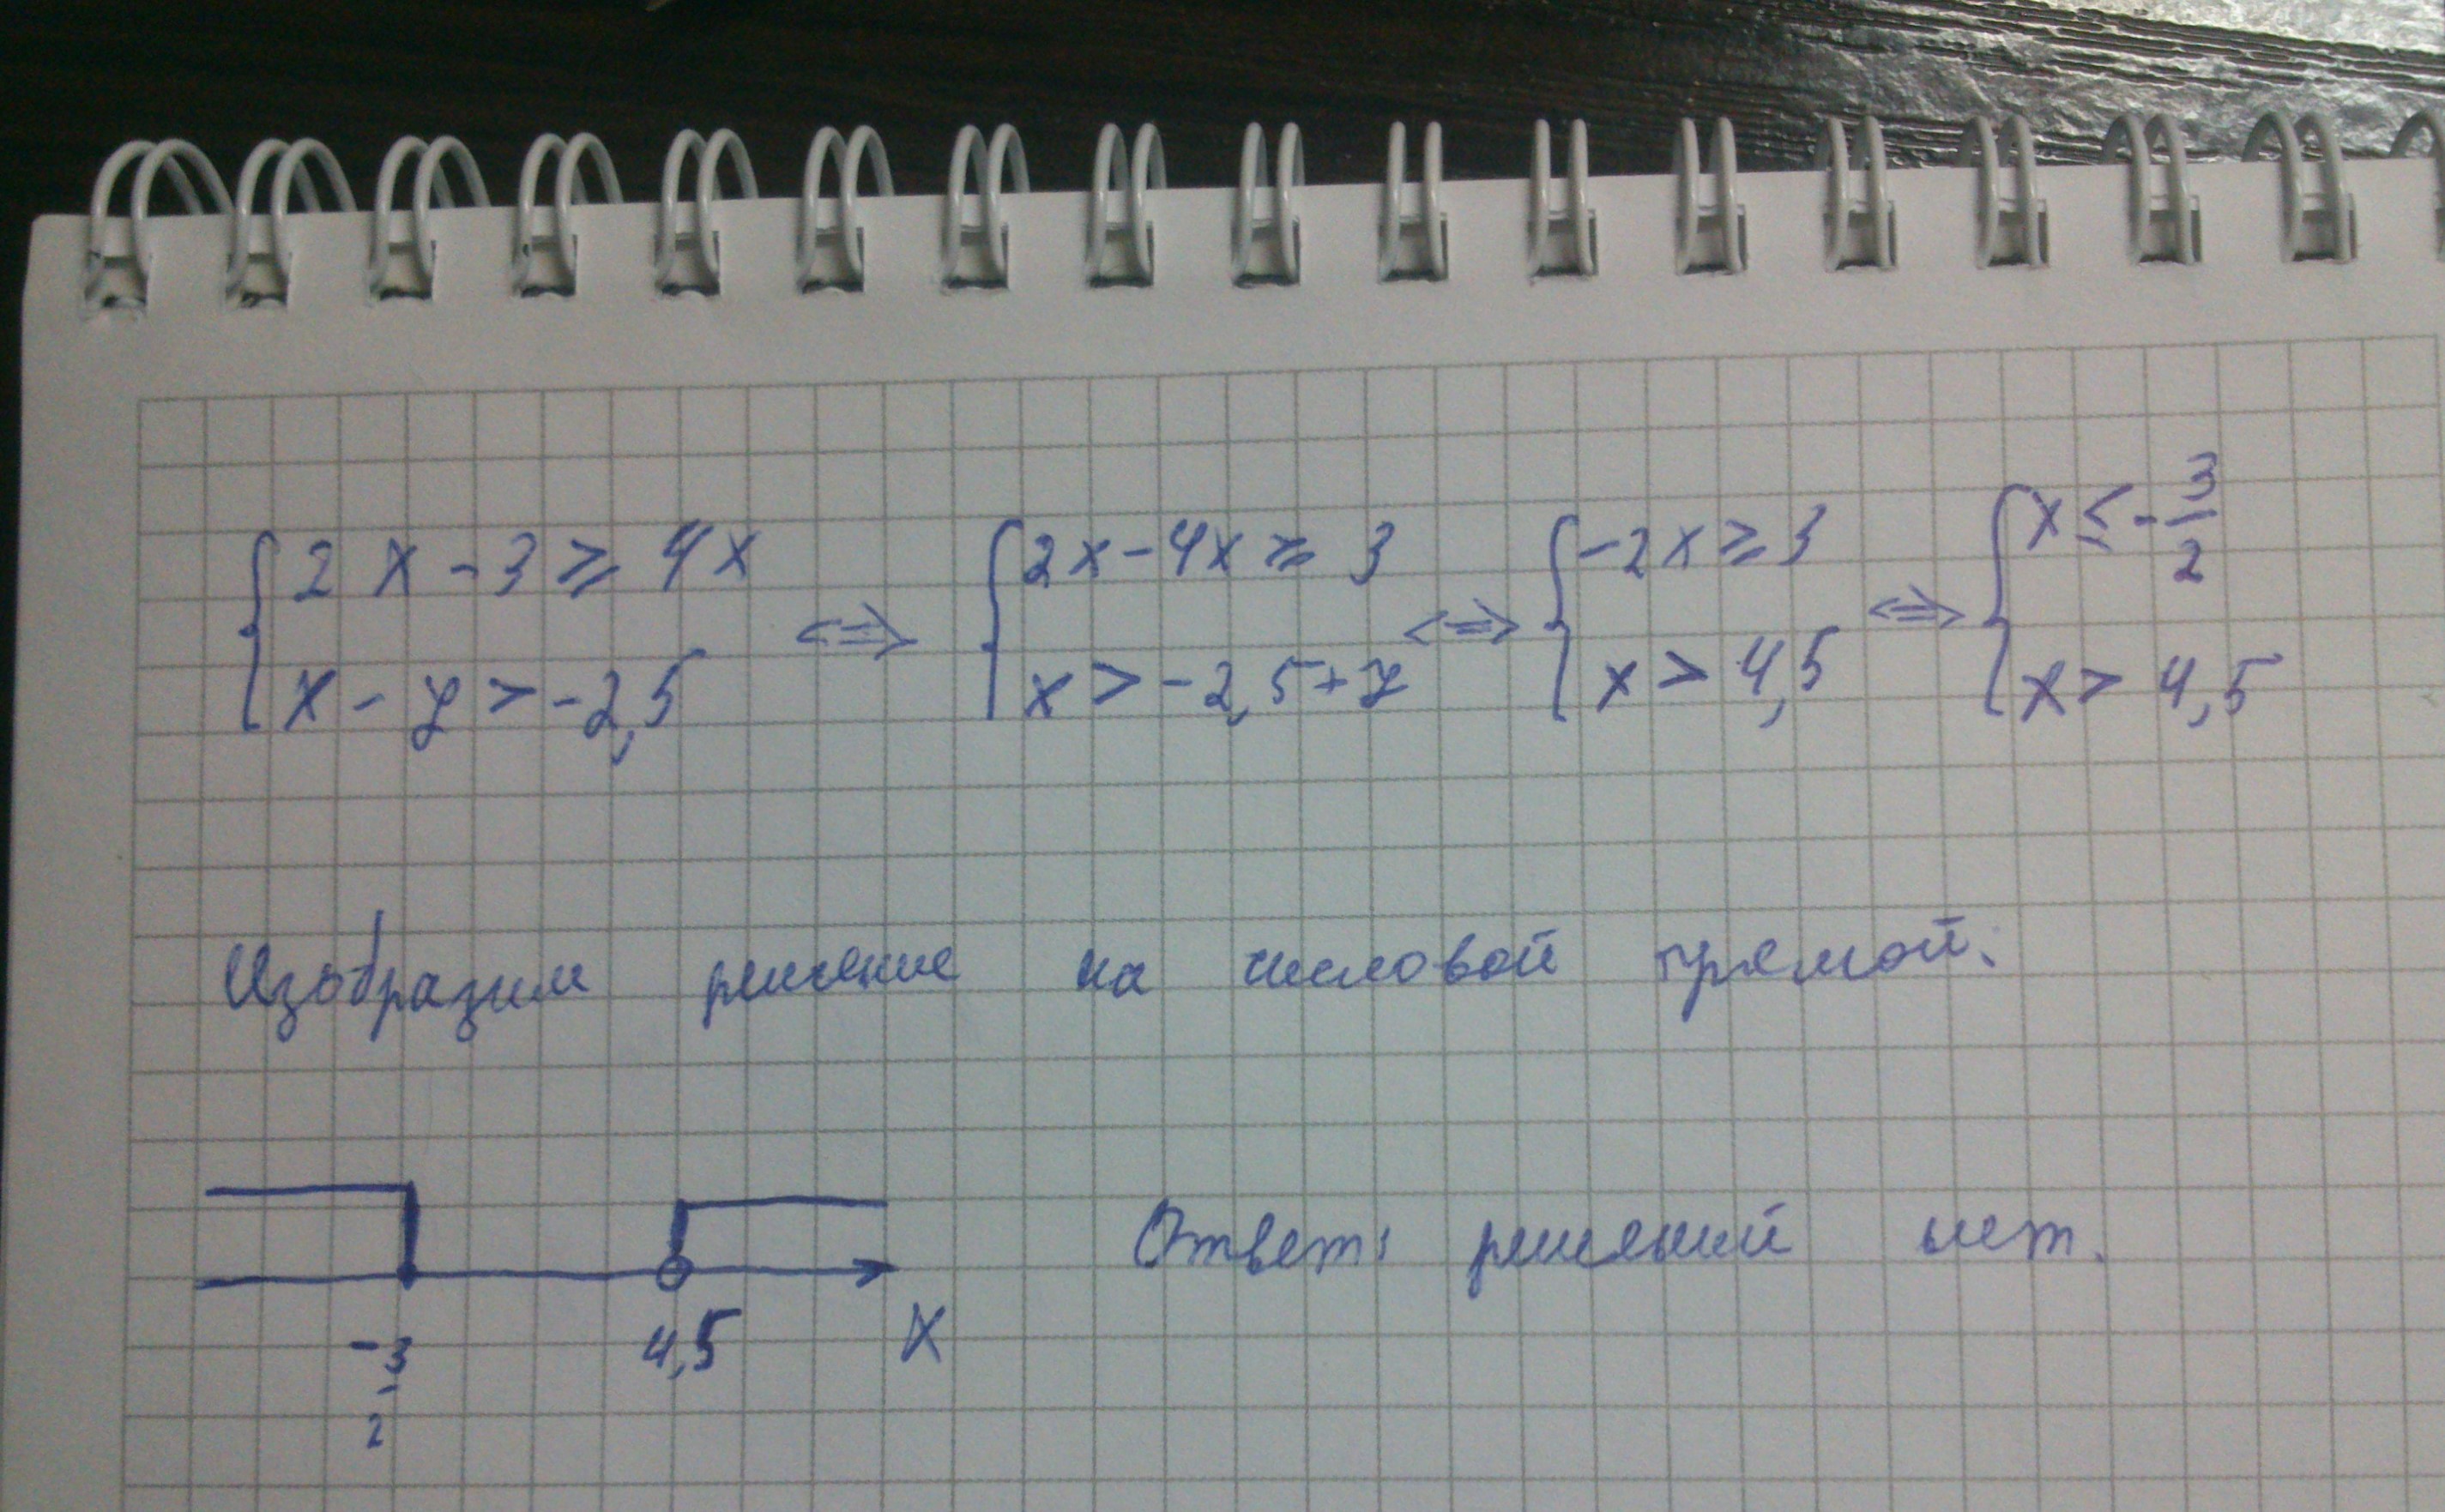 { 2x - 3 ⩾ 4x ⇔ { 2x - 4x ⩾ 3 ⇔ { -2x ⩾ 3 ⇔ { x ≤ -3/2
x - 7 > -2,5 x > -2,5 + 7 x > 4,5 x > 4,5
Изобразим решение на числовой прямой:
-3/2 4,5 x Ответ: решений нет.